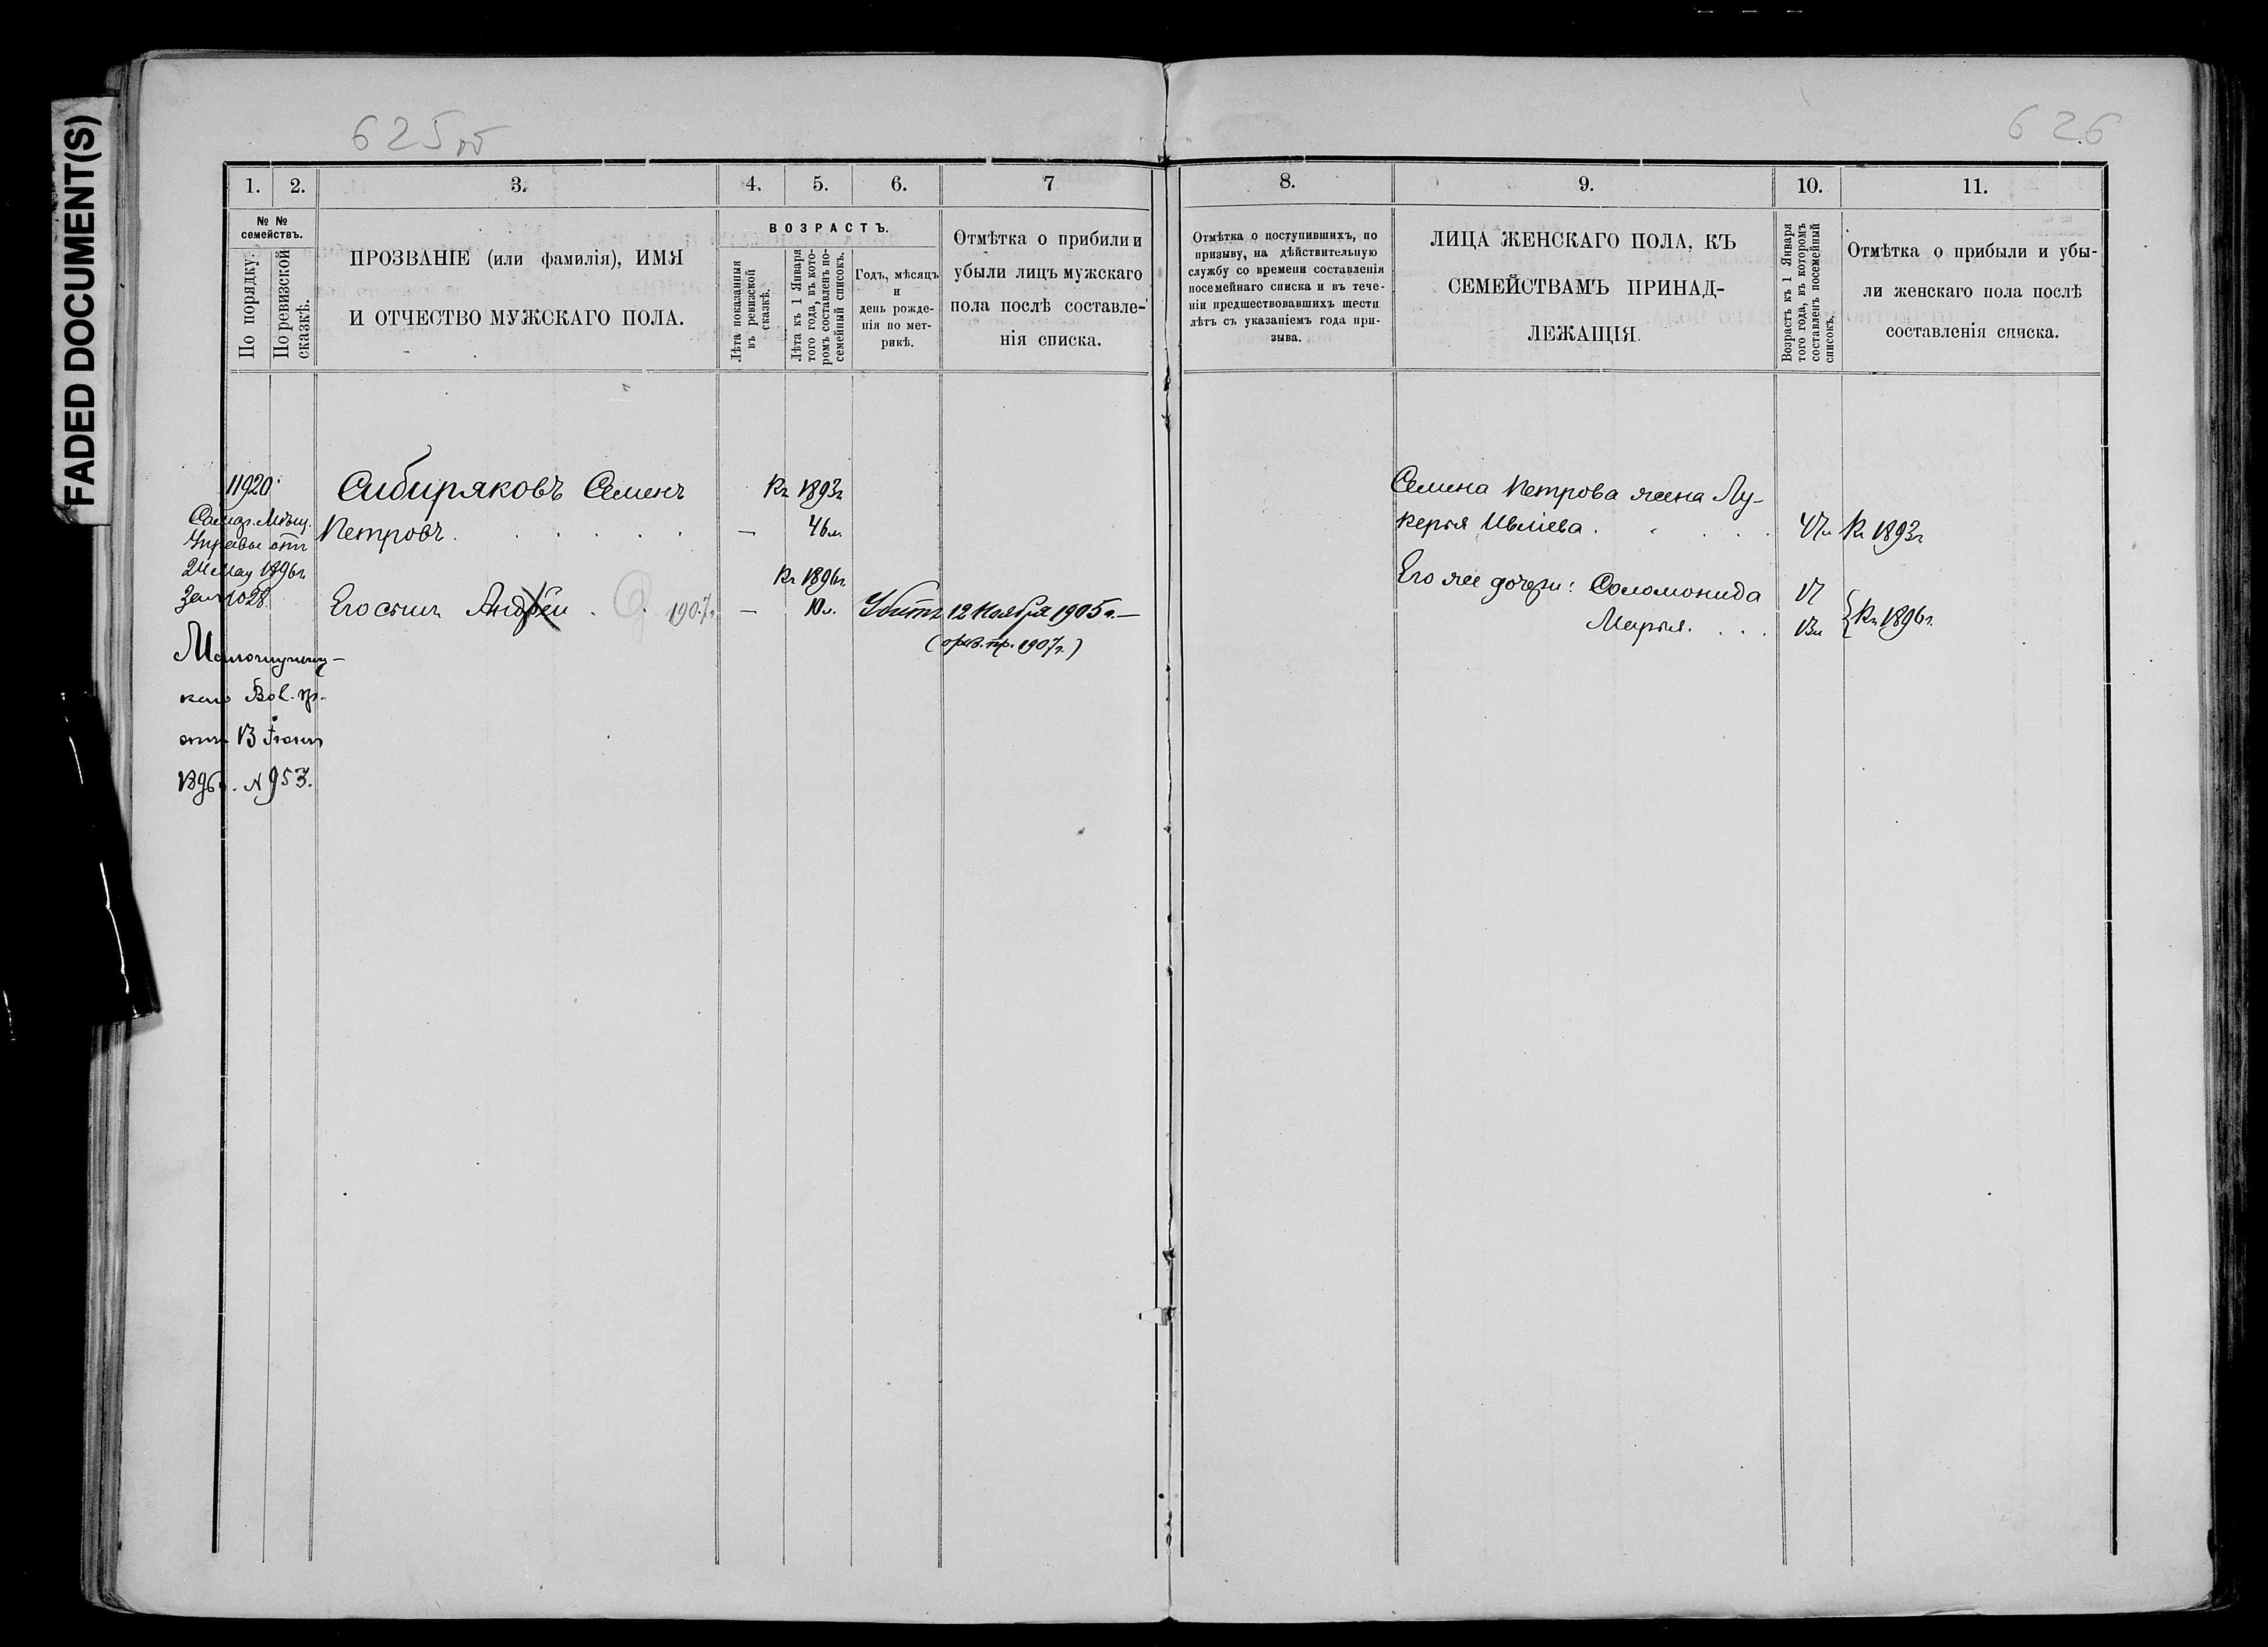 FADED DOCUMENT(S)
625об
626
1.
2.
3.
4.
5.
6.
7
№ №
семействъ.
По порядку.
По ревизской
сказкѣ.
ПРОЗВАНІЕ (или фамилія), ИМЯ
И ОТЧЕСТВО МУЖСКАГО ПОЛА.
ВОЗРАСТЪ.
Лѣта показанныя
въ ревизской
сказкѣ.
Лѣта къ 1 Января
того года, въ кото-
ромъ составленъ по-
семейный списокъ.
Годъ, мѣсяцъ
и
день рожде-
нія по мет-
рикѣ.
Отмѣтка о прибыли и
убыли лицъ мужскаго
пола послѣ составле-
нія списка.
8.
9.
10.
11.
Отмѣтка о поступившихъ, по
призыву, на дѣйствительную
службу со времени составленія
посемейнаго списка и въ тече-
ніи предшествовавшихъ шести
лѣтъ съ указаніемъ года при-
зыва.
ЛИЦА ЖЕНСКАГО ПОЛА, КЪ
СЕМЕЙСТВАМЪ ПРИНАД-
ЛЕЖАЩІЯ.
Возрастъ къ 1 Января
того года, въ которомъ
составленъ посемейный
списокъ.
Отмѣтка о прибыли и убы-
ли женскаго пола послѣ
составленія списка.
11920
Самар. Мѣщ.
Управы отъ
24 Мая 1896г.
За № 1028.
Вол. пр.
отъ 13 Іюня
1896г. № 953.
Сибиряковъ Семенъ
Петровъ . . . . . .
Къ 1893г
— 46л.
Къ 1896г.
Его сынъ Андрей . 1907г. — 10л. Убитъ 12 Ноября 1905г. —
(пр. 1907г.)
Семена Петрова жена Лу-
керья Ивліева . . . . . 47л Къ 1893г
Его же дочери: Соломонида 17
Марья. . . . 13л Къ 1896г.